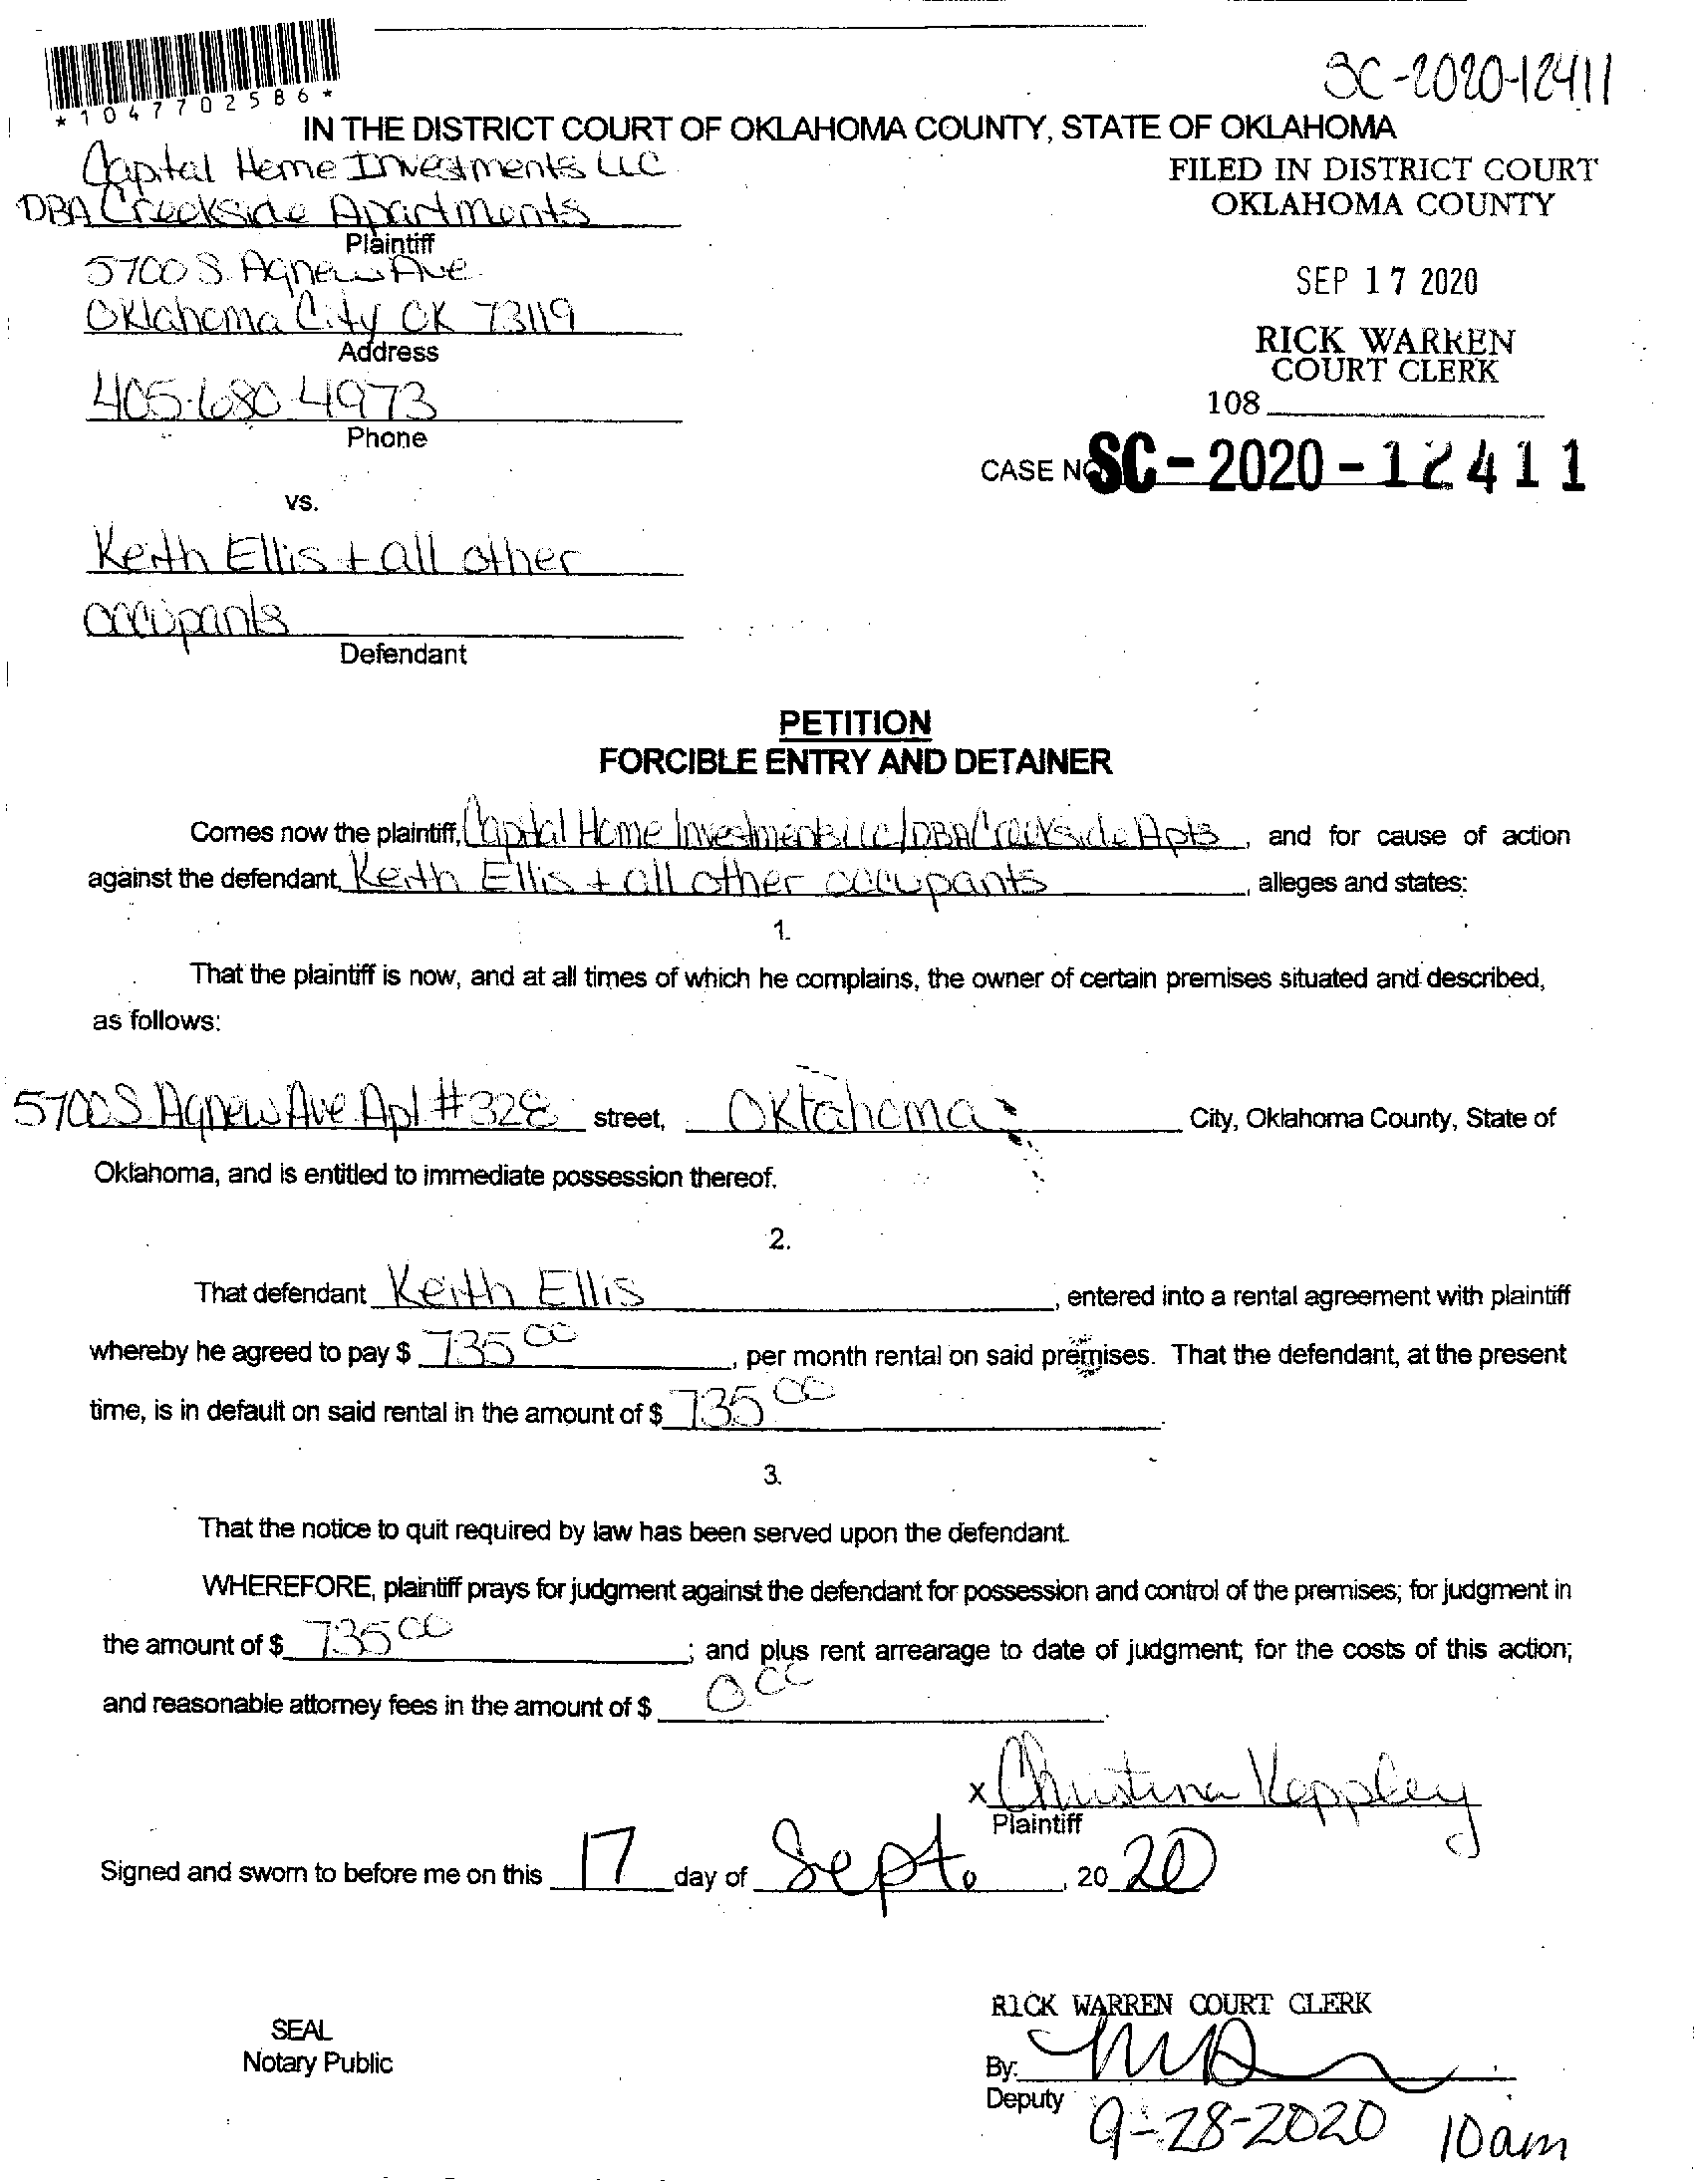 SC-2020-12411
*1047702586*
IN THE DISTRICT COURT OF OKLAHOMA COUNTY, STATE OF OKLAHOMA
Capital Home Investments LLC
DBA Creekside Apartments
Plaintiff
5700 S. Agnew Ave
Oklahoma City OK 73119
Address
405-680-4973
Phone
FILED IN DISTRICT COURT
OKLAHOMA COUNTY
SEP 17 2020
RICK WARREN
COURT CLERK
108
CASE NO SC-2020-12411
vs.
Keith Ellis + all other
occupants
Defendant
PETITION
FORCIBLE ENTRY AND DETAINER
Comes now the plaintiff, Capital Home Investments LLC/DBA Creekside Apts, and for cause of action
against the defendant, Keith Ellis + all other occupants, alleges and states:
1.
That the plaintiff is now, and at all times of which he complains, the owner of certain premises situated and described,
as follows:
5700 S Agnew Ave Apt #328 street, Oklahoma City, Oklahoma County, State of
Oklahoma, and is entitled to immediate possession thereof.
2.
That defendant Keith Ellis, entered into a rental agreement with plaintiff
whereby he agreed to pay $ 735 00, per month rental on said premises. That the defendant, at the present
time, is in default on said rental in the amount of $ 735 00.
3.
That the notice to quit required by law has been served upon the defendant.
WHEREFORE, plaintiff prays for judgment against the defendant for possession and control of the premises; for judgment in
the amount of $ 735 00; and plus rent arrearage to date of judgment; for the costs of this action;
and reasonable attorney fees in the amount of $ 0.00.
x Christina Keppley
Plaintiff
Signed and sworn to before me on this 17 day of Sept., 2020
RICK WARREN COURT CLERK
SEAL
Notary Public
By:
Deputy
9-28-2020 10am